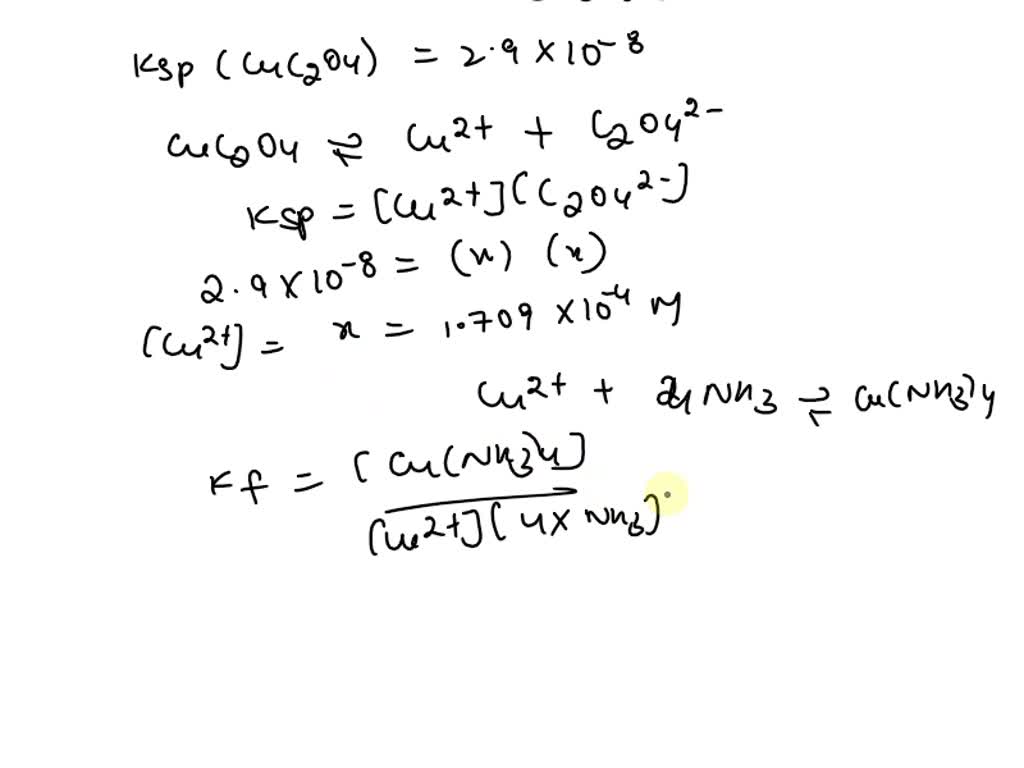 Ksp (CuC2O4) = 2.9 × 10-8
CuC2O4 ⇌ Cu2+ + C2O42-
Ksp = [Cu2+][C2O42-]
2.9 × 10-8 = (x) (x)
[Cu2+] = x = 1.709 × 10-4 M
Cu2+ + 4 NH3 ⇌ Cu(NH3)4
Kf = [Cu(NH3)4]
[Cu2+][4× NH3]